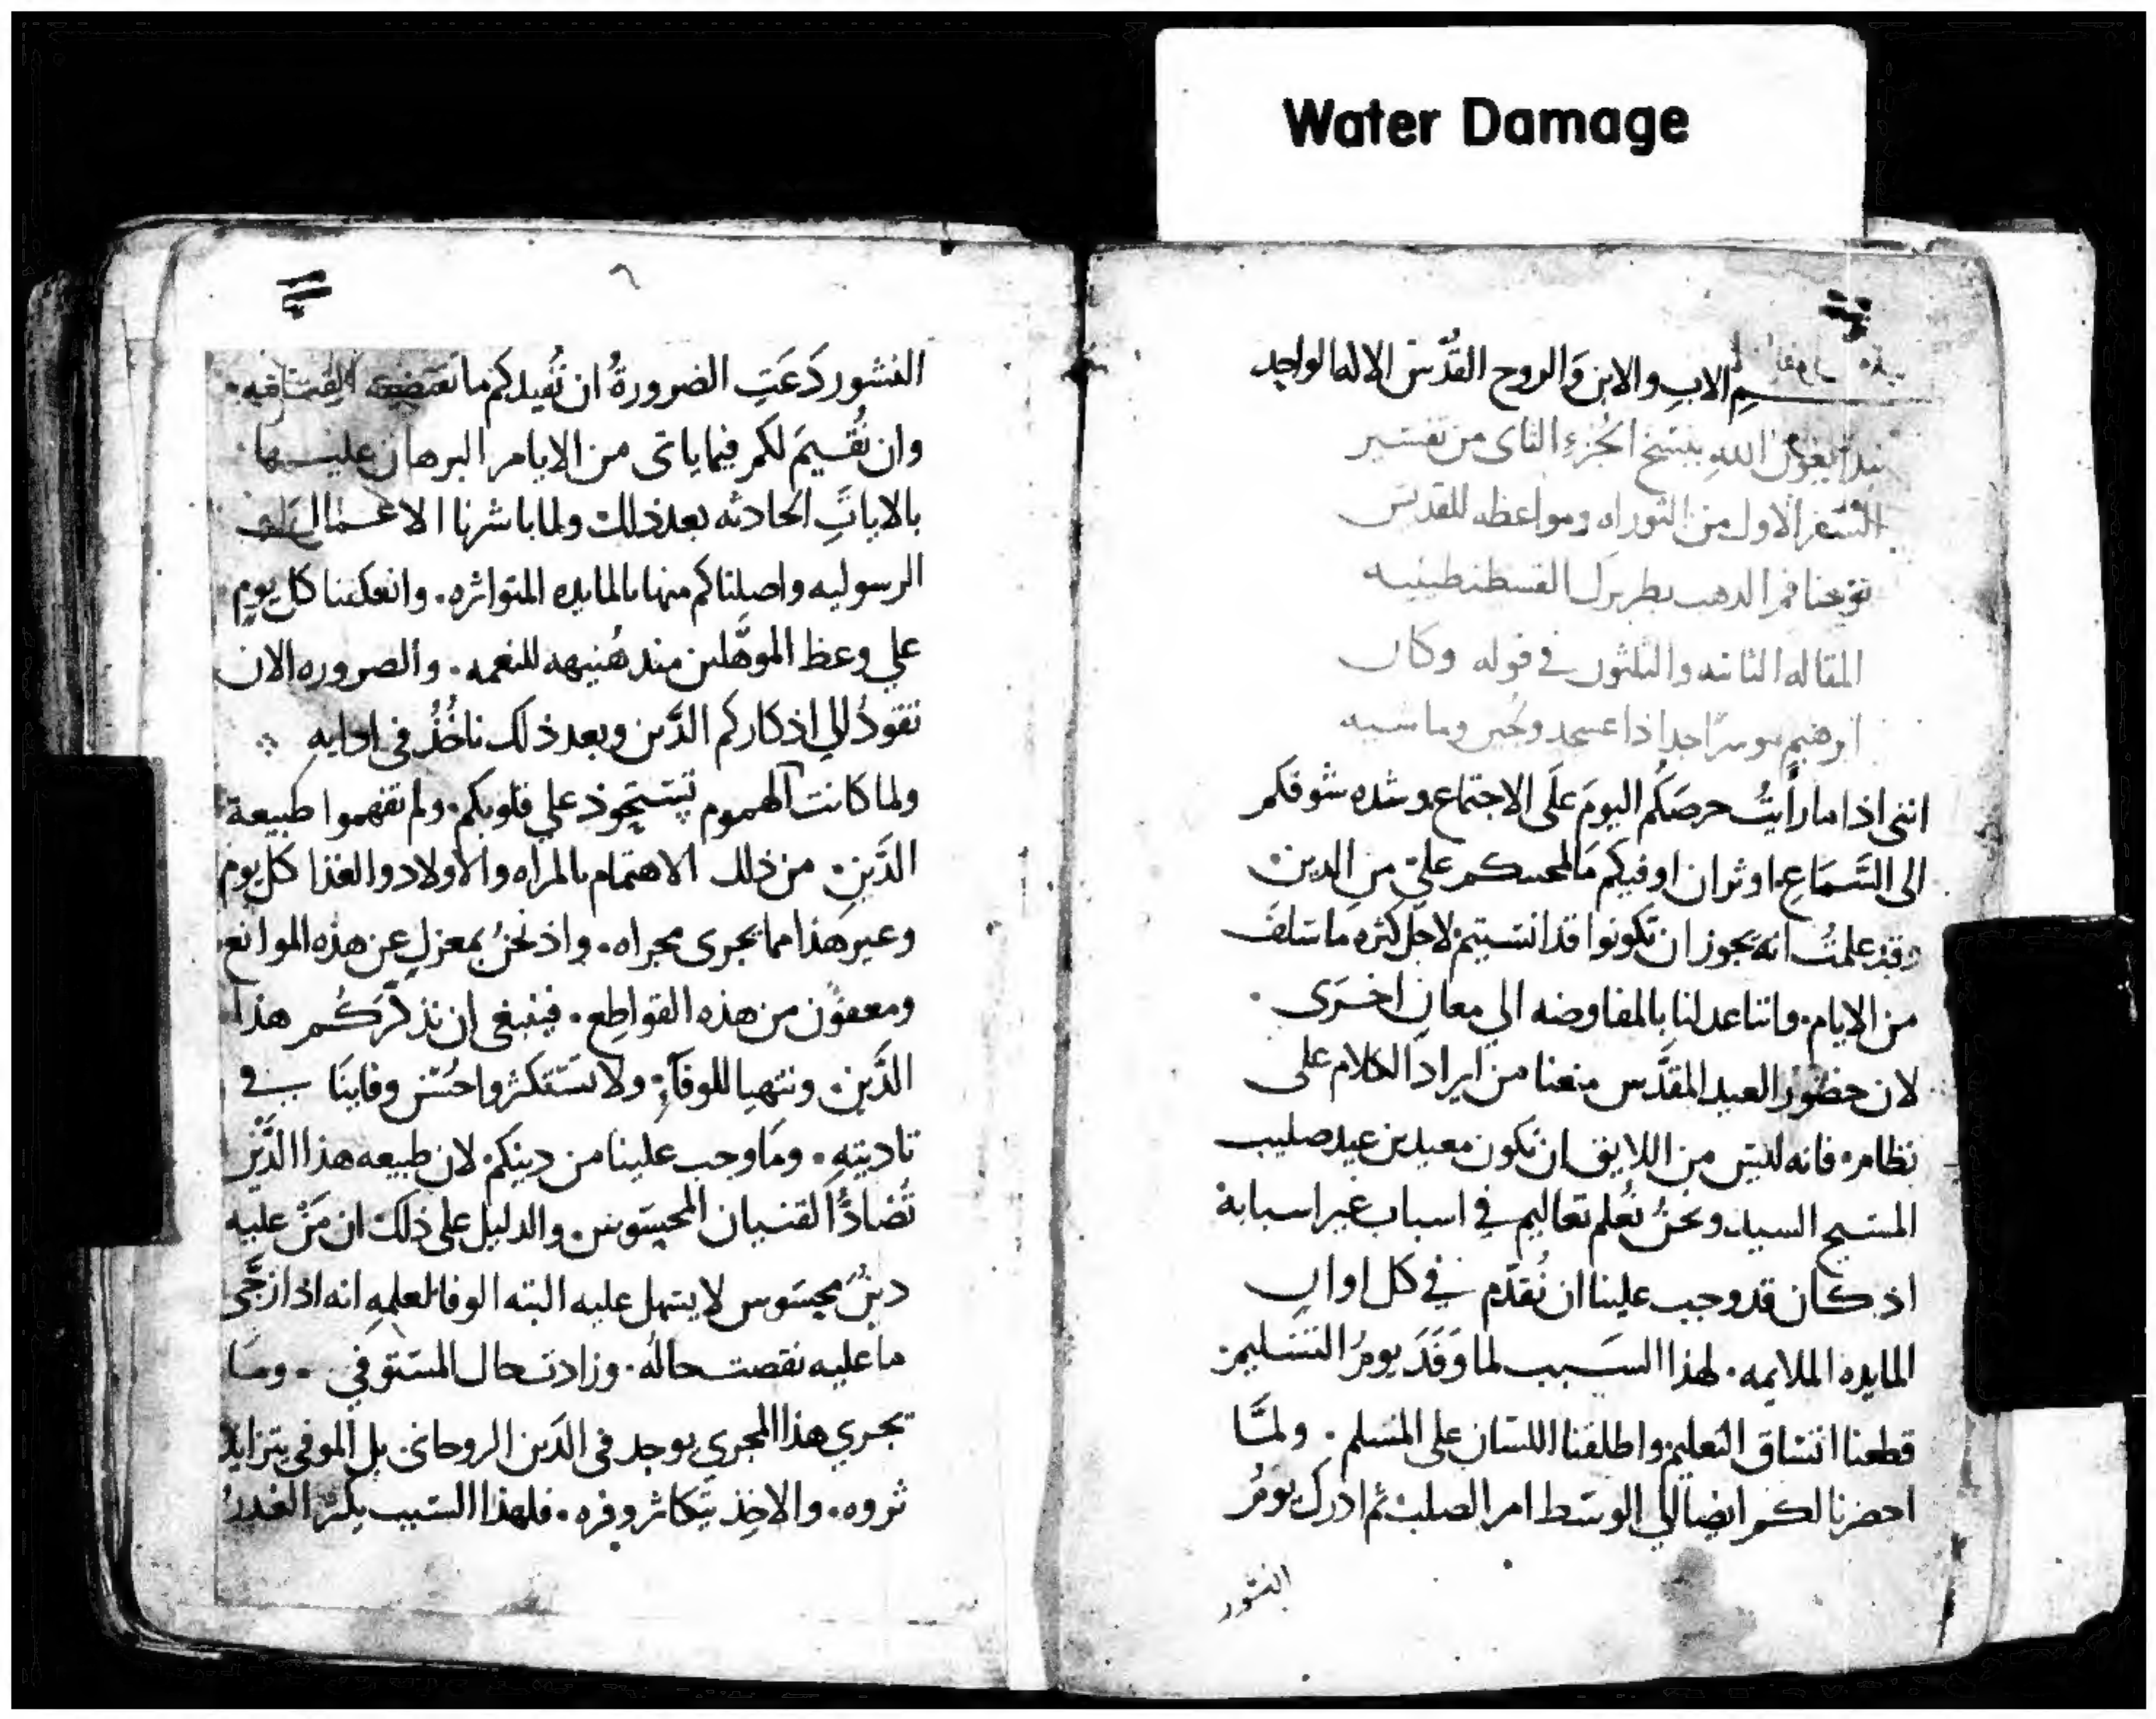 Water Damage
بسم الاب والابن والروح القُدّس الاله الواحد
نبدا بعون الله بنسخ الجُزءِ الثانى من تفسير
السّفر الاول من التوراه ومواعظه للقديس
يوحنا فم الدهب بطريرك القسطنطينيه
المقاله الثانيه والثلثون في قوله وكان
ابرهيم موسرًا جدا ذا عسجد ولجين وماشيه
اننى اذا ما رأيتُ حرصَكُم اليومَ عَلَى الاجتماع وشده شوقكم
الى السَّمَاعِ اوثر ان اوفيكم مَا لمحبتكم عليّ من الدين
وقد علمتُ انه يجوز ان تكونوا قد انسيتم لاجل كثره ما سَلفَ
من الايام واننا عدلنا بالمفاوضه الي معانٍ اخرَى
لان حضور العيد المقدَّس منعنا من ايراد الكلام على
نظامه فانه ليس من اللايق ان نكون معيدين عيد صليب
المسيح السيد ونحنُ نُعلم تعاليم في اسباب غير اسبابه
اذ كان قد وجب علينا ان نُقدّم في كل اوانٍ
المايده الملايمه لهذا السَبب لما وَفَدَ يومُ التسليم
قطعنا اتساق التعليم واطلقنا اللسان على المسلم ولمَّا
احضرنا لكم ايضا الي الوسَط امر الصلب ثم ادرك يومُ
النشور
٦
النشور دَعَتِ الضرورةُ ان نُفيدكم ما تقتضيه القيامه
وان نُقيمَ لكم فيما ياتى من الايام البرهان عليها
بالاياتِ الحادثه بعد ذلك ولما باشرنا الاعمال
الرسوليه واصلناكم منها بالمايده المتواتره وانعكفنا كل يوم
علي وعظ الموهَّلين منذ هُنيهه للنعمه والضروره الان
تقودُ الي اذكاركم الدَّين وبعد ذلك ناخُذُ في ادايه
ولما كانت الهموم تستحوذ علي قلوبكم ولم تفهموا طبيعة
الدَّين من ذلك الاهتمام بالمراه والاولاد والغذا كل يوم
وغير هَذا مما يجرى مجراه واذ نحنُ بمعزلٍ عن هذه الموانع
ومعفوّن من هذه القواطع فينبغى ان نذكّرَكُم هذا
الدَّين ونتهيا للوفآءِ ولا تستكثروا حُسْن وفاينَا في
تاديته ومَا وجب علينا من دينكم لان طبيعه هذا الدَّيْن
تُضادُّ القنيان المحسَوسَ والدليل على ذلك ان مَنْ عليه
دينٌ محسَوس لا يسهل عليه البته الوفا لعلمهِ انه اذا زجَّى
ما عليه نقصت حالُه وزادت حال المستوفي وما
يجري هذا المجري يوجد فى الدَين الروحانى بل الموفى يتزايد
ثروه والاخِذ يتكاثر وفره فلهذا السَبب يكثر الغدرُ